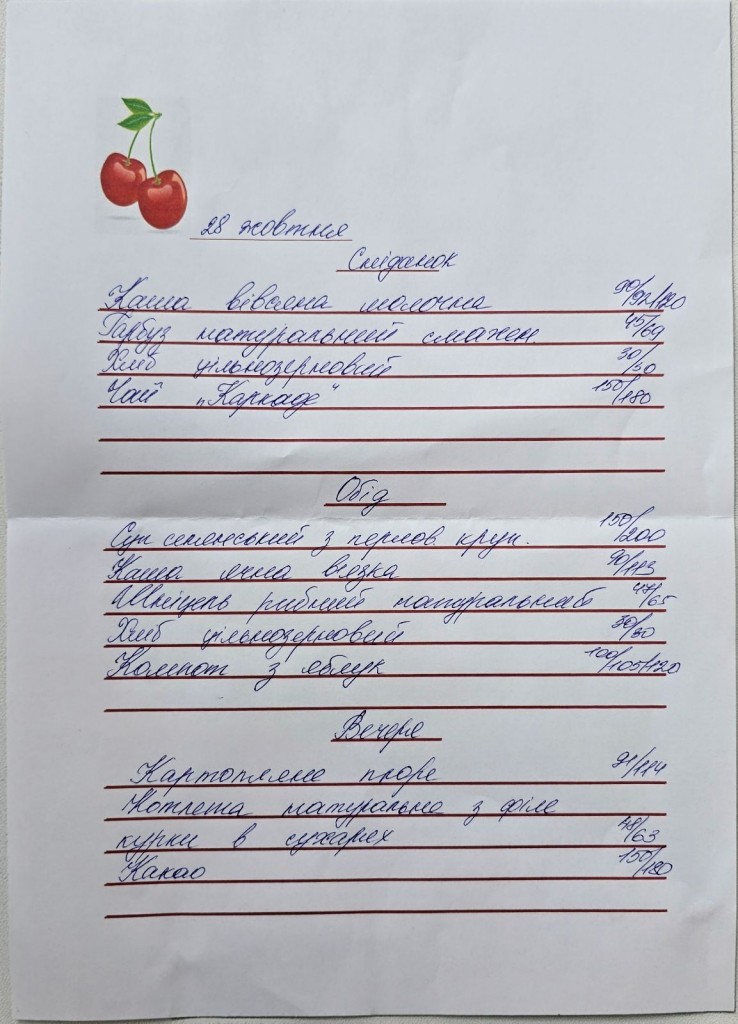 28 жовтня
Сніданок
Каша вівсяна молочна 90/92/120
Гарбуз натуральний смажен. 45/69
Хліб цільнозерновий 30/50
Чай „Каркаде" 150/180
Обід
Суп селянський з перлов. круп. 150/200
Каша ячна в'язка 90/113
Шніцель рибний натуральний /65
Хліб цільнозерновий /50
Компот з яблук 100/105/120
Вечеря
Картопляне пюре 91/114
Котлета натуральна з філе
курки в сухарях 48/63
Какао 150/180